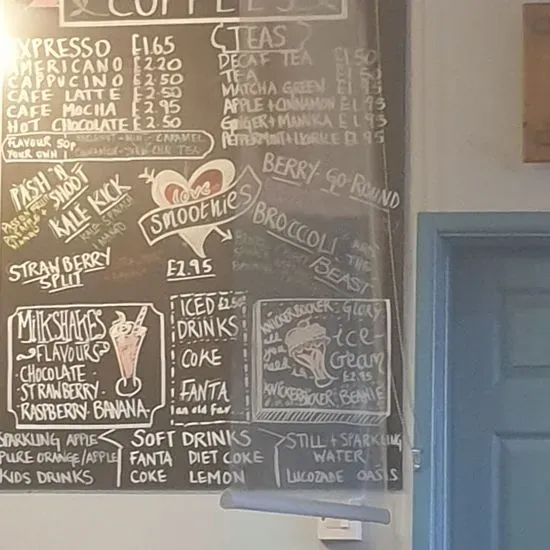 COFFEES
EXPRESSO £1.65
AMERICANO £2.20
CAPPUCINO £2.50
CAFE LATTE £2.50
CAFE MOCHA £2.95
HOT CHOCOLATE £2.50
FLAVOUR 50P
YOUR OWN!
CARAMEL
TEAS
DECAF TEA £1.50
TEA £1.50
MATCHA GREEN £1.95
APPLE + CINNAMON £1.95
GINGER + MANUKA £1.95
PEPPERMINT + LICORICE £1.95
PASH 'N' SHOOT
KALE KICK
KALE SPINACH
MANGO
STRAWBERRY
SPLIT
LOVE
SMOOTHIES
£2.95
BERRY GO-ROUND
BROCCOLI AND
THE
BEAST
MILKSHAKES
FLAVOURS
CHOCOLATE
STRAWBERRY
RASPBERRY BANANA
ICED £2.50
DRINKS
COKE
FANTA
KNICKERBOCKER GLORY
all
you
need
is
ice
cream
£2.95
KNICKERBOCKER BEANIE
SPARKLING APPLE
PURE ORANGE/APPLE
KIDS DRINKS
SOFT DRINKS
FANTA DIET COKE
COKE LEMON
STILL + SPARKLING
WATER
LUCOZADE OASIS